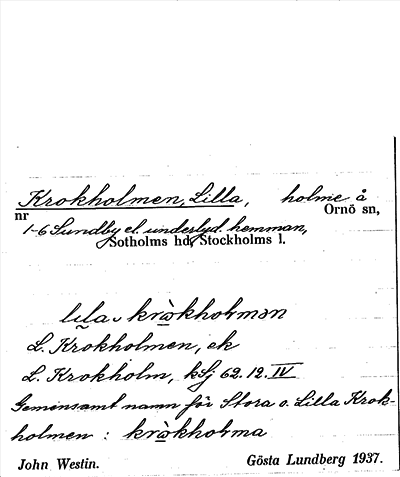 Krokholmen, Lilla, holme å
nr Ornö sn,
1-6 Sundby el. underlyd. hemman,
Sotholms hd, Stockholms l.
lıla krɷ̀kholmən
L. Krokholmen, ek
L. Krokholm, ksj 62.12.IV
Gemensamt namn för Stora o. Lilla Krok-
holmen: krɷ̀kholma
John Westin. Gösta Lundberg 1937.